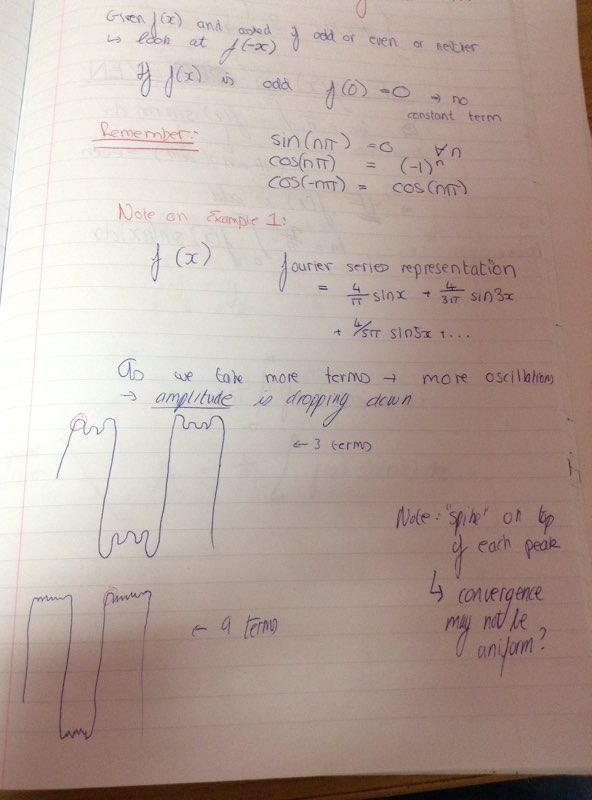 Given f(x) and asked if odd or even or neither
↳ look at f(-x)
If f(x) is odd f(0) = 0 → no
constant term
Remember:
sin(nπ) = 0 ∀n
cos(nπ) = (-1)^n
cos(-nπ) = cos(nπ)
Note on Example 1:
f(x) fourier series representation
= 4/π sinx + 4/3π sin3x
+ 4/5π sin5x + ...
As we take more terms → more oscillations
→ amplitude is dropping down
← 3 terms
Note: "spike" on top
of each peak
↳ convergence
may not be
uniform?
← 9 terms